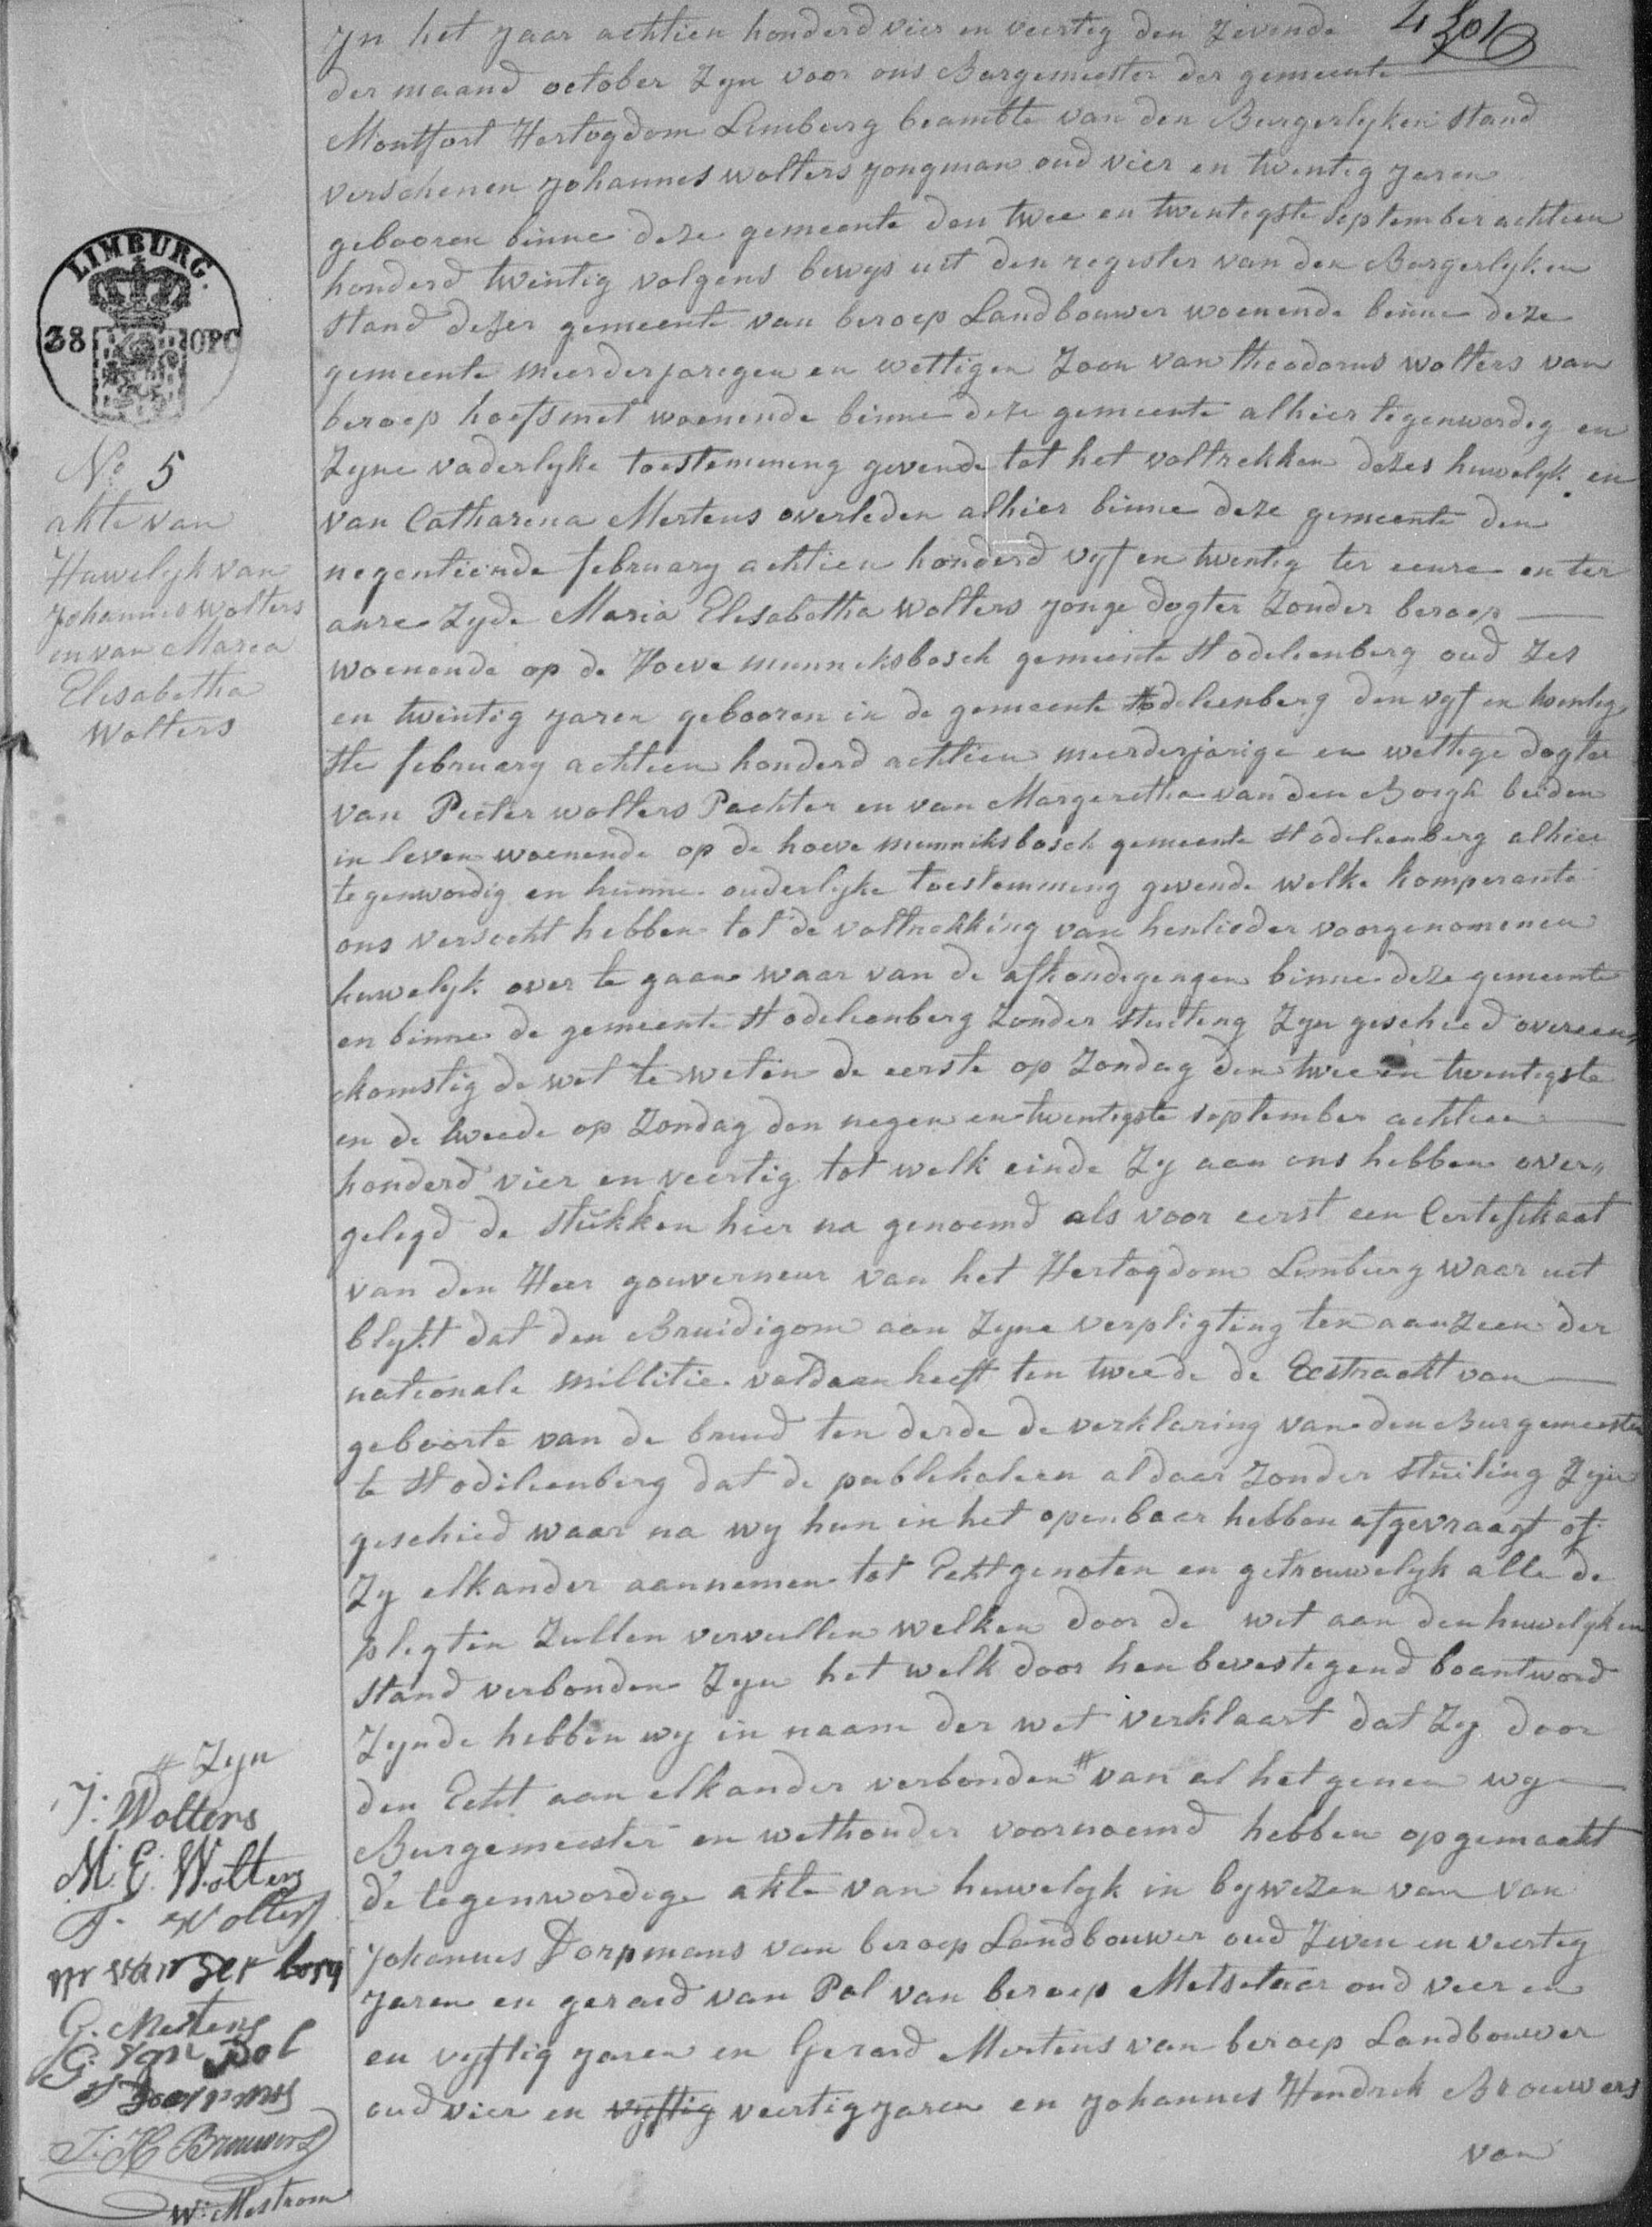 In het jaar achtien honderd vier en veertig den zevende
der maand october zyn voor ons Burgemeester der gemeente
Montfort Hertogdom Limburg beambte van den Burgerlyken stand
verschenen Johannes Wolters jongman oud vier en twentig jaren
gebooren binne deze gemeente den twee en twentigste september achtien
honderd twintig volgens bewys uit den register van den Burgerlyken
stand dezer gemeente van beroep Landbouwer woenende binne deze
gemeente meerderjarigen en wettigen zoon van theodorus wolters van
beroep hoefsmet woenende binne deze gemeente alhier tegenwordig en
zyne vaderlyke toestemming gevende tot het voltrekken dezes huwelyk en
van Catharina Mertens overleden alhier binne deze gemeente den
negentiende february achtien honderd vyf en twentig ter eenre en ter
anre zyde Maria Elisabetha Wolters jonge dogter zonder beroep
woenende op de Hoeve munniksbosch gemeente St odelienberg oud zes
en twintig jaren gebooren in de gemeente St odelienberg den vyf en twentig
ste february achtien honderd achtien meerderjarige en wettige dogter
van Peeter wolters Pachter en van Margeretha van den Borgh beiden
in leven woenende op de hoeve munniksbosch gemeente St odelienberg alhier
tegenwordig en hunne ouderlyke toestemming gevende welke komperante
ons versocht hebben tot de voltrekking van henlieder voorgenomenen
huwelyk over te gaan waar van de afkondegengen binne deze gemeente
en binne de gemeente St odelienberg zonder stuiteng zyn geschied overeen,,
komstig de wet te weten de eerste op zondag den twee en twentigste
en de tweede op zondag den negen en twentigste september achtien
honderd vier en veertig tot welk einde zy aan ons hebben over,,
gelegd de stukken hier na genoemd als voor eerst een Certefikaat
van den Heer gouverneur van het Hertogdom Limburg waar uit
blykt dat den Bruidigom aan zyne verpligting ten aanzeen der
nationale millitie voldaan heeft ten tweede de Exstrackt van
geboorte van de bruid ten derde de verklaring van den Burgemeester
te St odilienberg dat de publikateen aldaer zonder stuiting zyn
geschied waar na wy hun in het openbaar hebben afgevraagt of
zy elkander aannemen tot Echtgenoten en getrouwelyk alle de
plegten zullen vervullen welken door de wet aan den huwelyken
stand verbonden zyn het welk door hen bevestegend beantword
zynde hebben wy in naam der wet verklaart dat zy door
den Echt aan elkander verbonden # van al het genen wy
Burgemeester en wethouder voornoemd hebben opgemaekt
de tegenwordege akte van huwelyk in bywezen van van
Johannes Dorpmans van beroep Landbouwer oud zeven en veerteg
jaren en gerard van Pol van beroep Metselaar oud veer en
en vyftig jaren en Gerard Mertens van beroep Landbouwer
oud vier en vyftig veertig jaren en Johannes Hendrik Brouwers
van
LIMBURG.
38 OPC
No 5
akte van
Huwelyk van
Johannes wolters
en van Maria
Elisabetha
Wolters
# Zyn
J: Wolters
M. E. Wolters
T. Wolters
m van der borg
G. Mertens
G: van Pol
J: H Brouwers
W: Mestrom